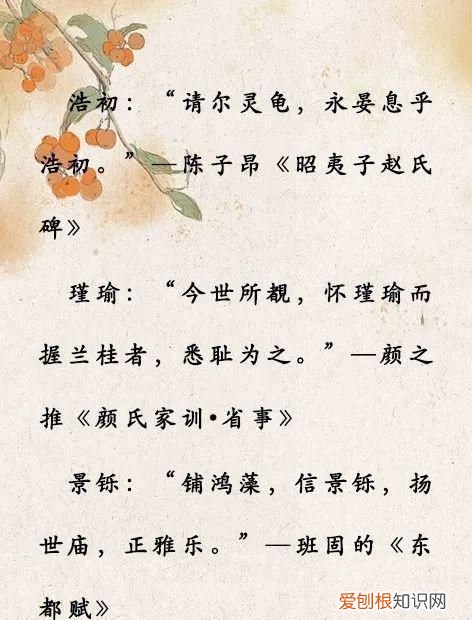 浩初：“请尔灵龟，永晏息乎
浩初。”—陈子昂《昭夷子赵氏
碑》
瑾瑜：“今世所覩，怀瑾瑜而
握兰桂者，悉耻为之。”—颜之
推《颜氏家训•省事》
景铄：“铺鸿藻，信景铄，扬
世庙，正雅乐。”—班固的《东
都赋》
爱刨根知识网